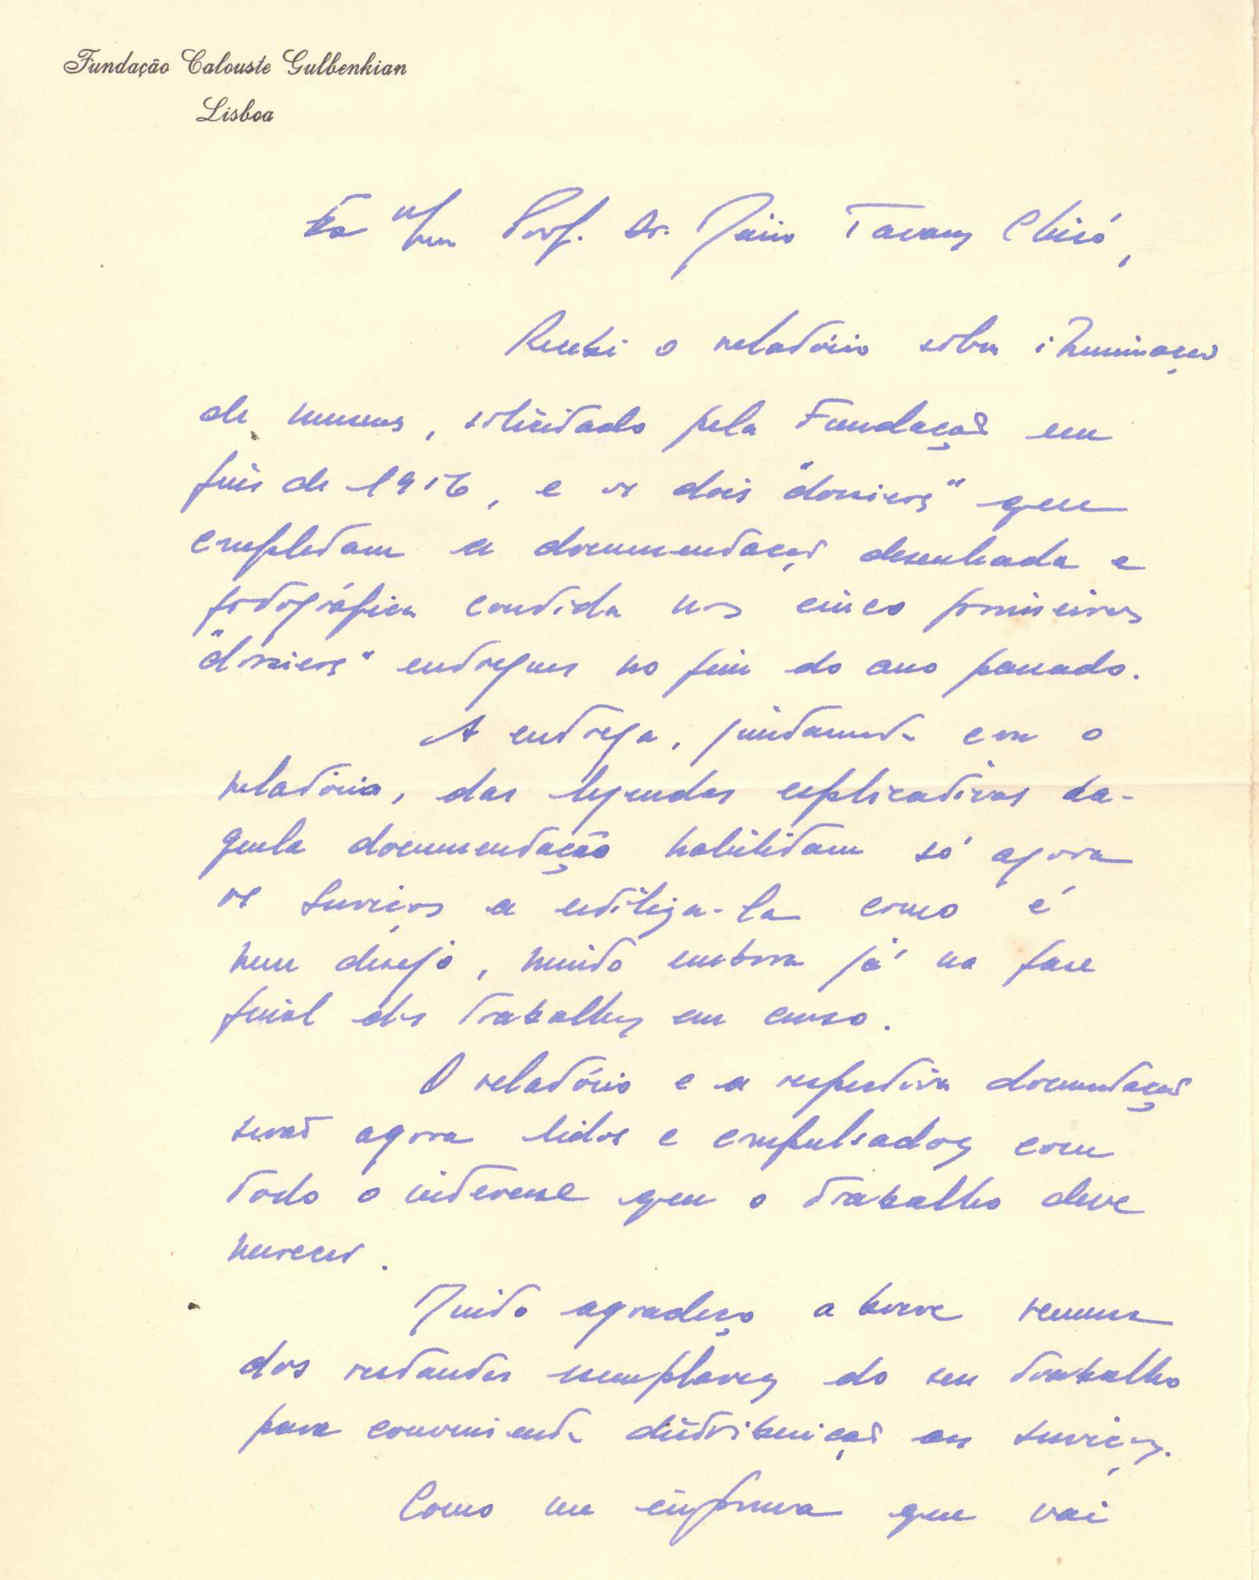 Fundação Calouste Gulbenkian
Lisboa
Exmo Prof. Dr. Mário Tavares Chicó,
Recebi o relatório sobre iluminação
de museus, solicitado pela Fundação em
fins de 1956, e os dois "dossiers" que
completam a documentação desenhada e
fotográfica contida nos cinco primeiros
"dossiers" entregues no fim do ano passado.
A entrega, juntamente com o
relatório, das legendas explicativas da-
quela documentação habilitam só agora
os Serviços a utilizá-la como é
meu desejo, muito embora já na fase
final dos trabalhos em curso.
O relatório e a respectiva documentação
serão agora lidos e compulsados com
todo o interesse que o trabalho deve
merecer.
Muito agradeço a breve remessa
dos restantes exemplares do seu trabalho
para conveniente distribuição aos Serviços.
Como me informa que vai